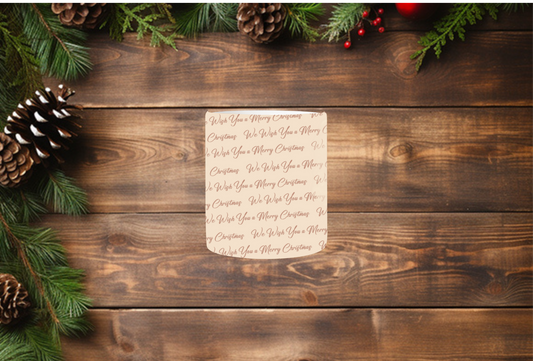 We Wish You a Merry Christmas
Christmas We Wish You a Merry
We Wish You a Merry Christmas
Christmas We Wish You a Merry
We Wish You a Merry Christmas
Christmas We Wish You a Merry
We Wish You a Merry Christmas
Christmas We Wish You a
We Wish You a Merry Christmas